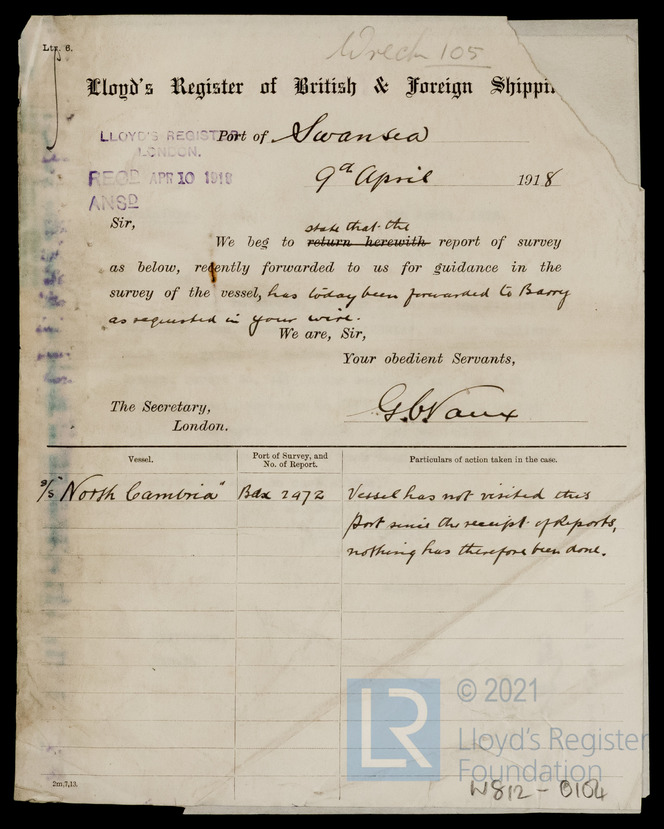 Ltr. 6.
Wreck 105
Lloyd's Register of British & Foreign Shippin
LLOYD'S REGISTER
LONDON.
Port of Swansea
REC'D APR 10 1918
ANSD
9th April 1918
Sir,
state that the
We beg to return herewith report of survey
as below, recently forwarded to us for guidance in the
survey of the vessel, has today been forwarded to Barry
as requested in your wire.
We are, Sir,
Your obedient Servants,
G.C.Vaux
The Secretary,
London.
Vessel.
Port of Survey, and
No. of Report.
Particulars of action taken in the case.
s/s "North Cambria"
2472
Vessel has not visited this
Port since the receipt of Reports,
nothing has therefore been done.
LR
© 2021
Lloyd's Register
Foundation
W812 - 0104
2m,7,13.